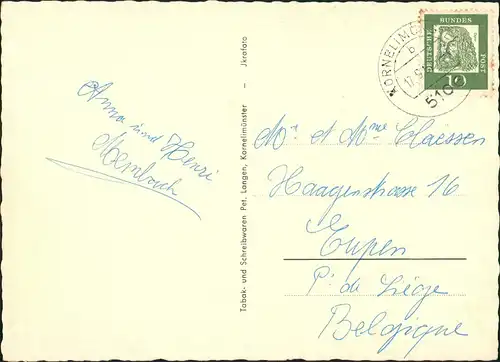 Anna und Henri
Membach
Tabak- und Schreibwaren Pet. Langen, Kornelimünster - Jkrafoto
KORNELIMÜ
5106
DEUTSCHE BUNDES POST
10
Mr et Mme Claessen
Haagenstrasse 16
Eupen
Pr. de Liége
Belgique